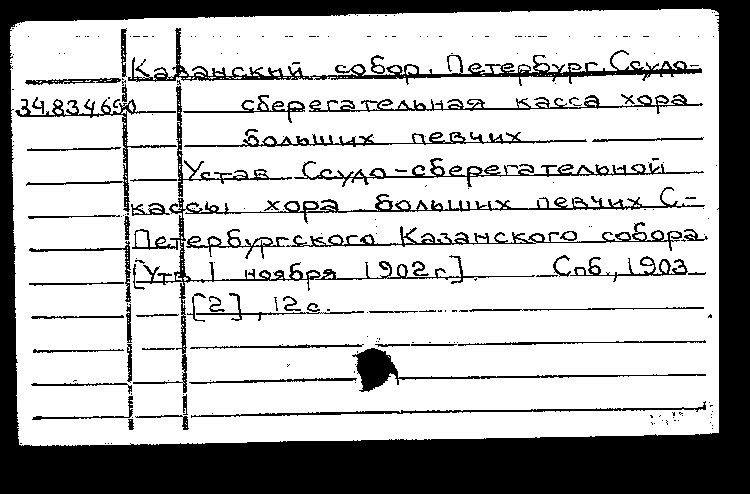 Казанский собор, Петербург. Ссудо-
34.834690 сберегательная касса хора
больших певчих
Устав Ссудо-сберегательной
кассы хора больших певчих С.-
Петербургского Казанского собора.
[Утв. 1 ноября 1902 г.] Спб., 1903
[2], 12 с.